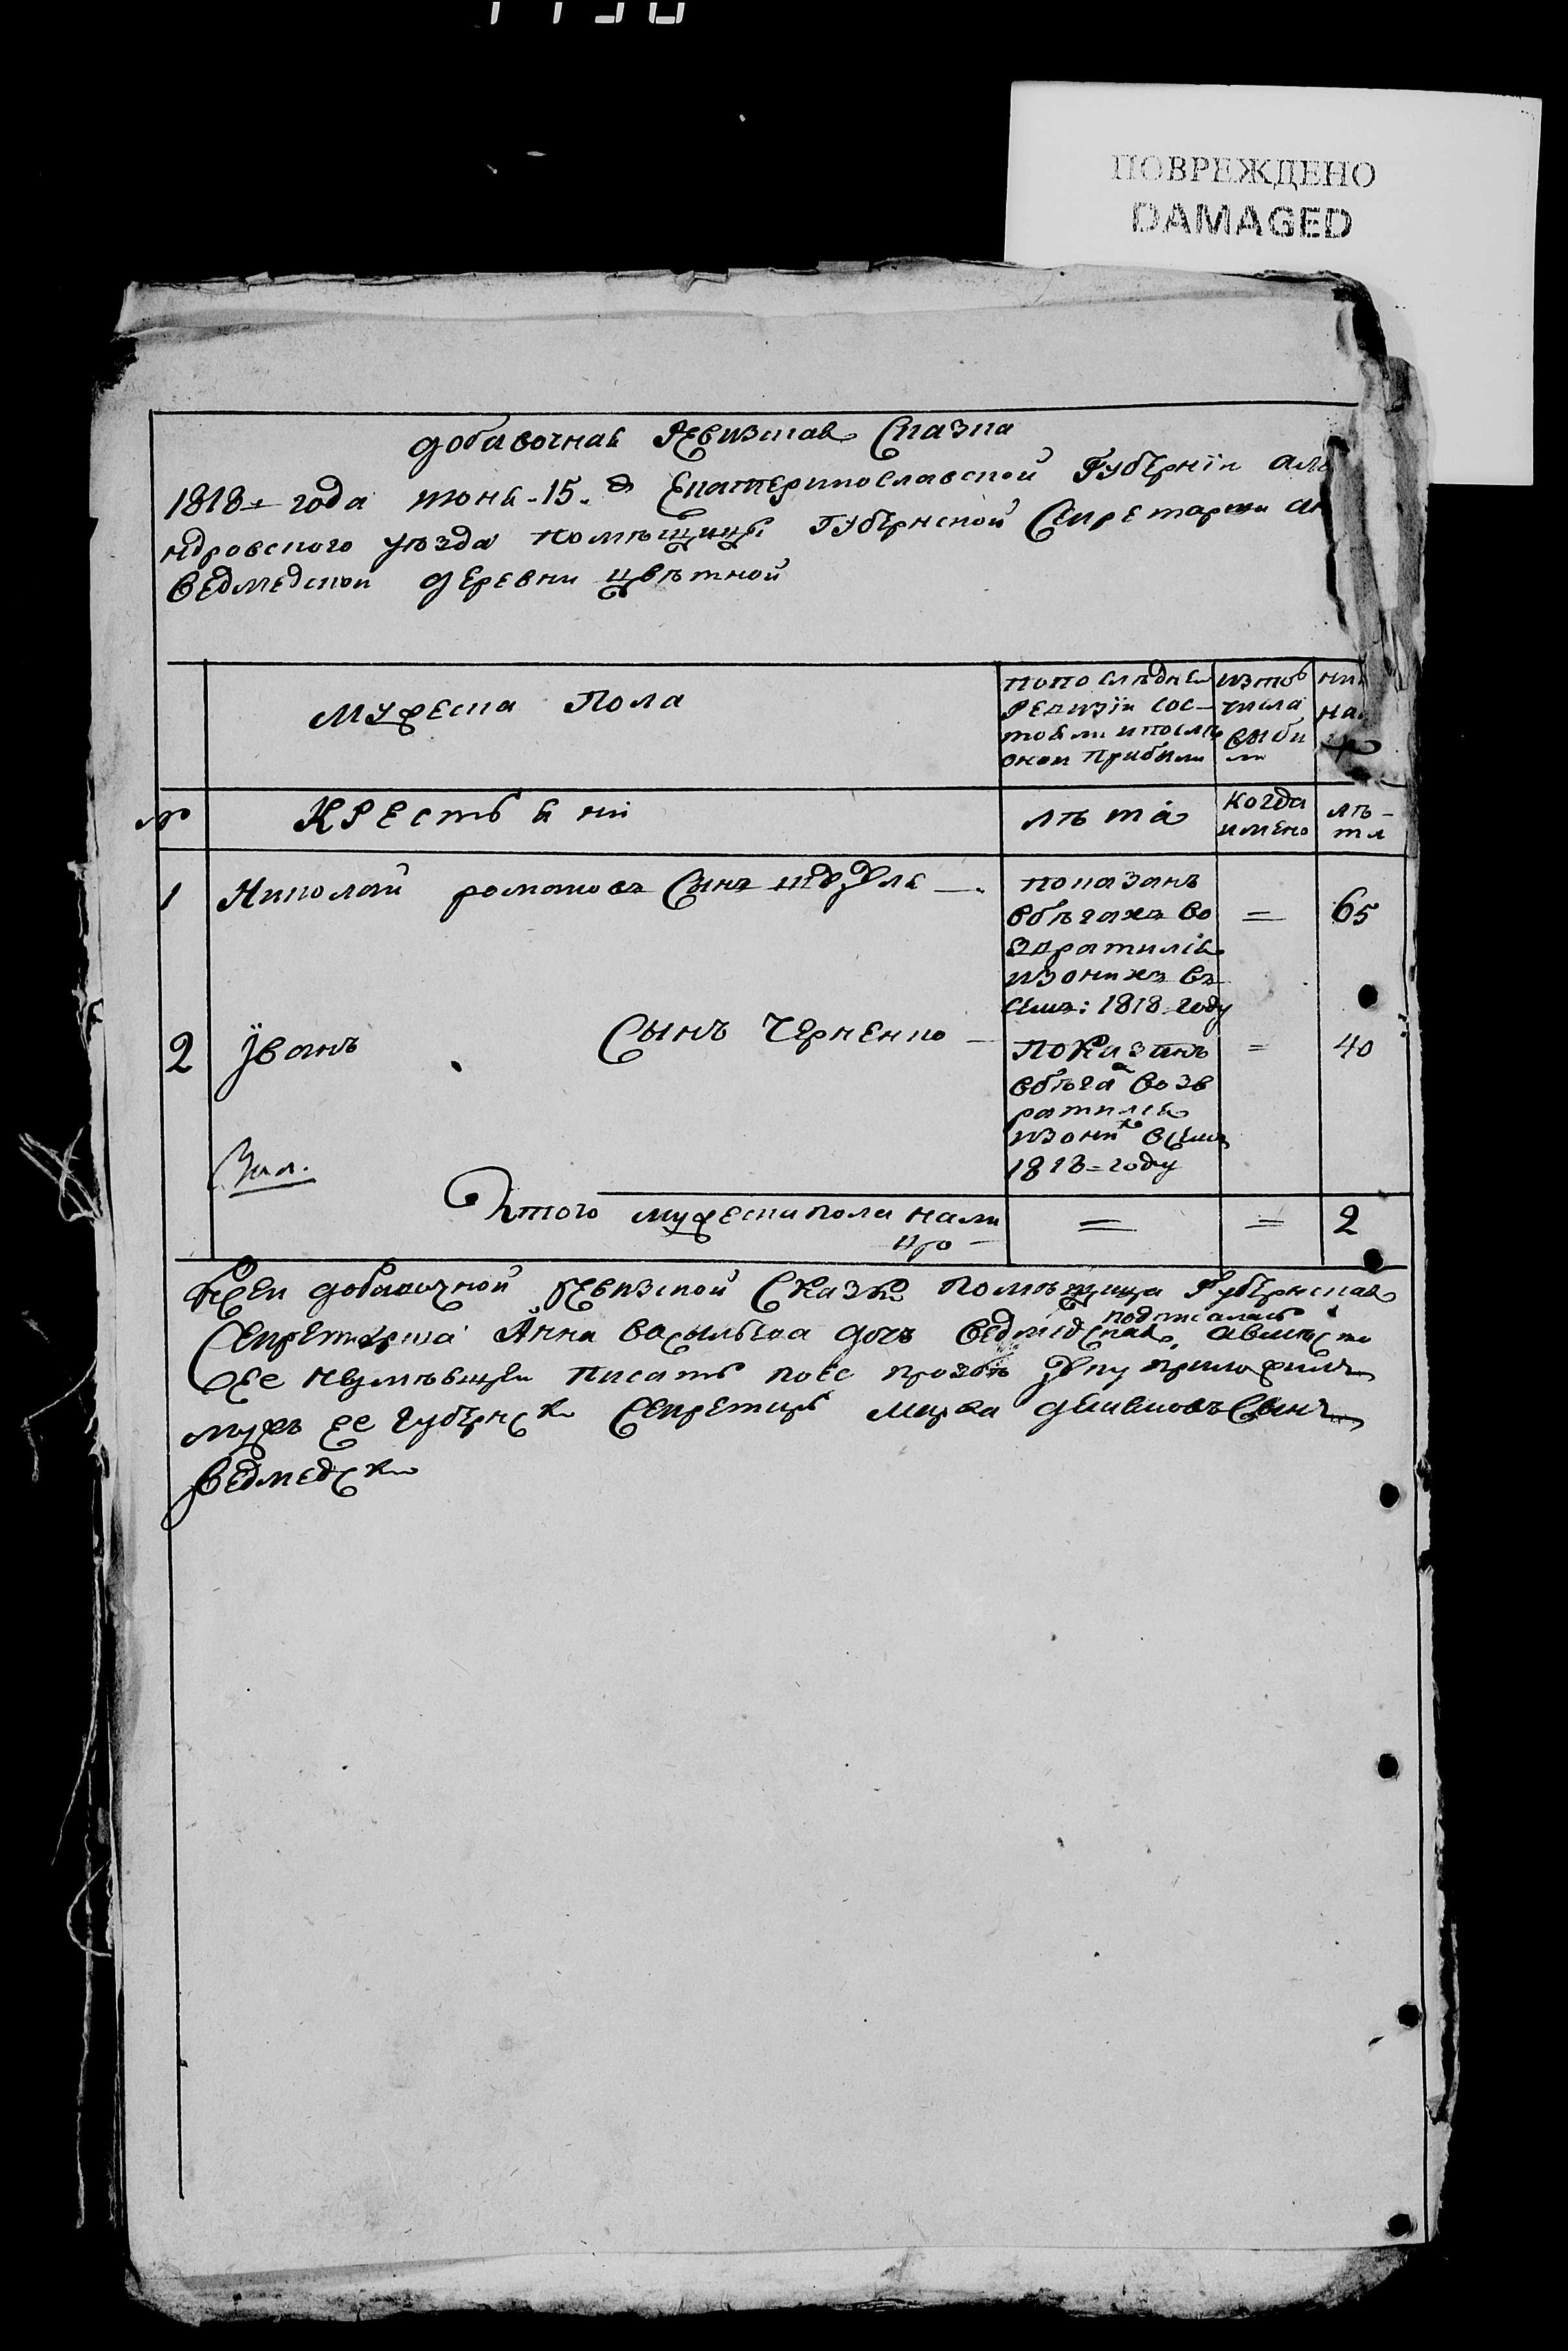 ПОВРЕЖДЕНО
DAMAGED
добавочная Ревизская Сказка
1818 года июня 15 д Екатеринославской Губернїи Але
ндровского уѣзда помѣщицы Губернской Секретарши Ан
ведмедской деревни цвѣтной
мужеска Пола
попоследней
Ревизїи сос-
тояли и послѣ
оной прибыли
изтого
числа
выбы
ли
ны
на
№
КРЕСТЬЯНИ
лѣта
когда
имено
лѣ-
та
1 Николай романовъ Сынъ — показанъ
вбѣгахъ во
звратился
изонихъ въ
семъ: 1818 году
= 65
2 Їванъ Сынъ Черненко — показанъ
вбѣгах возв
ратился
изоних всемъ
1818 = году
= 40
Итого мужеска пола нали
цо —
= = 2
Ксей добавочной ревизской Сказке помѣщица Губернская
Секретарша Анна васильева дочь ведмедская подписалась авместо
ее неумѣющей писать поее прозбѣ руку приложилъ
мужъ ее губернской Секретарь сынъ
ведмедской